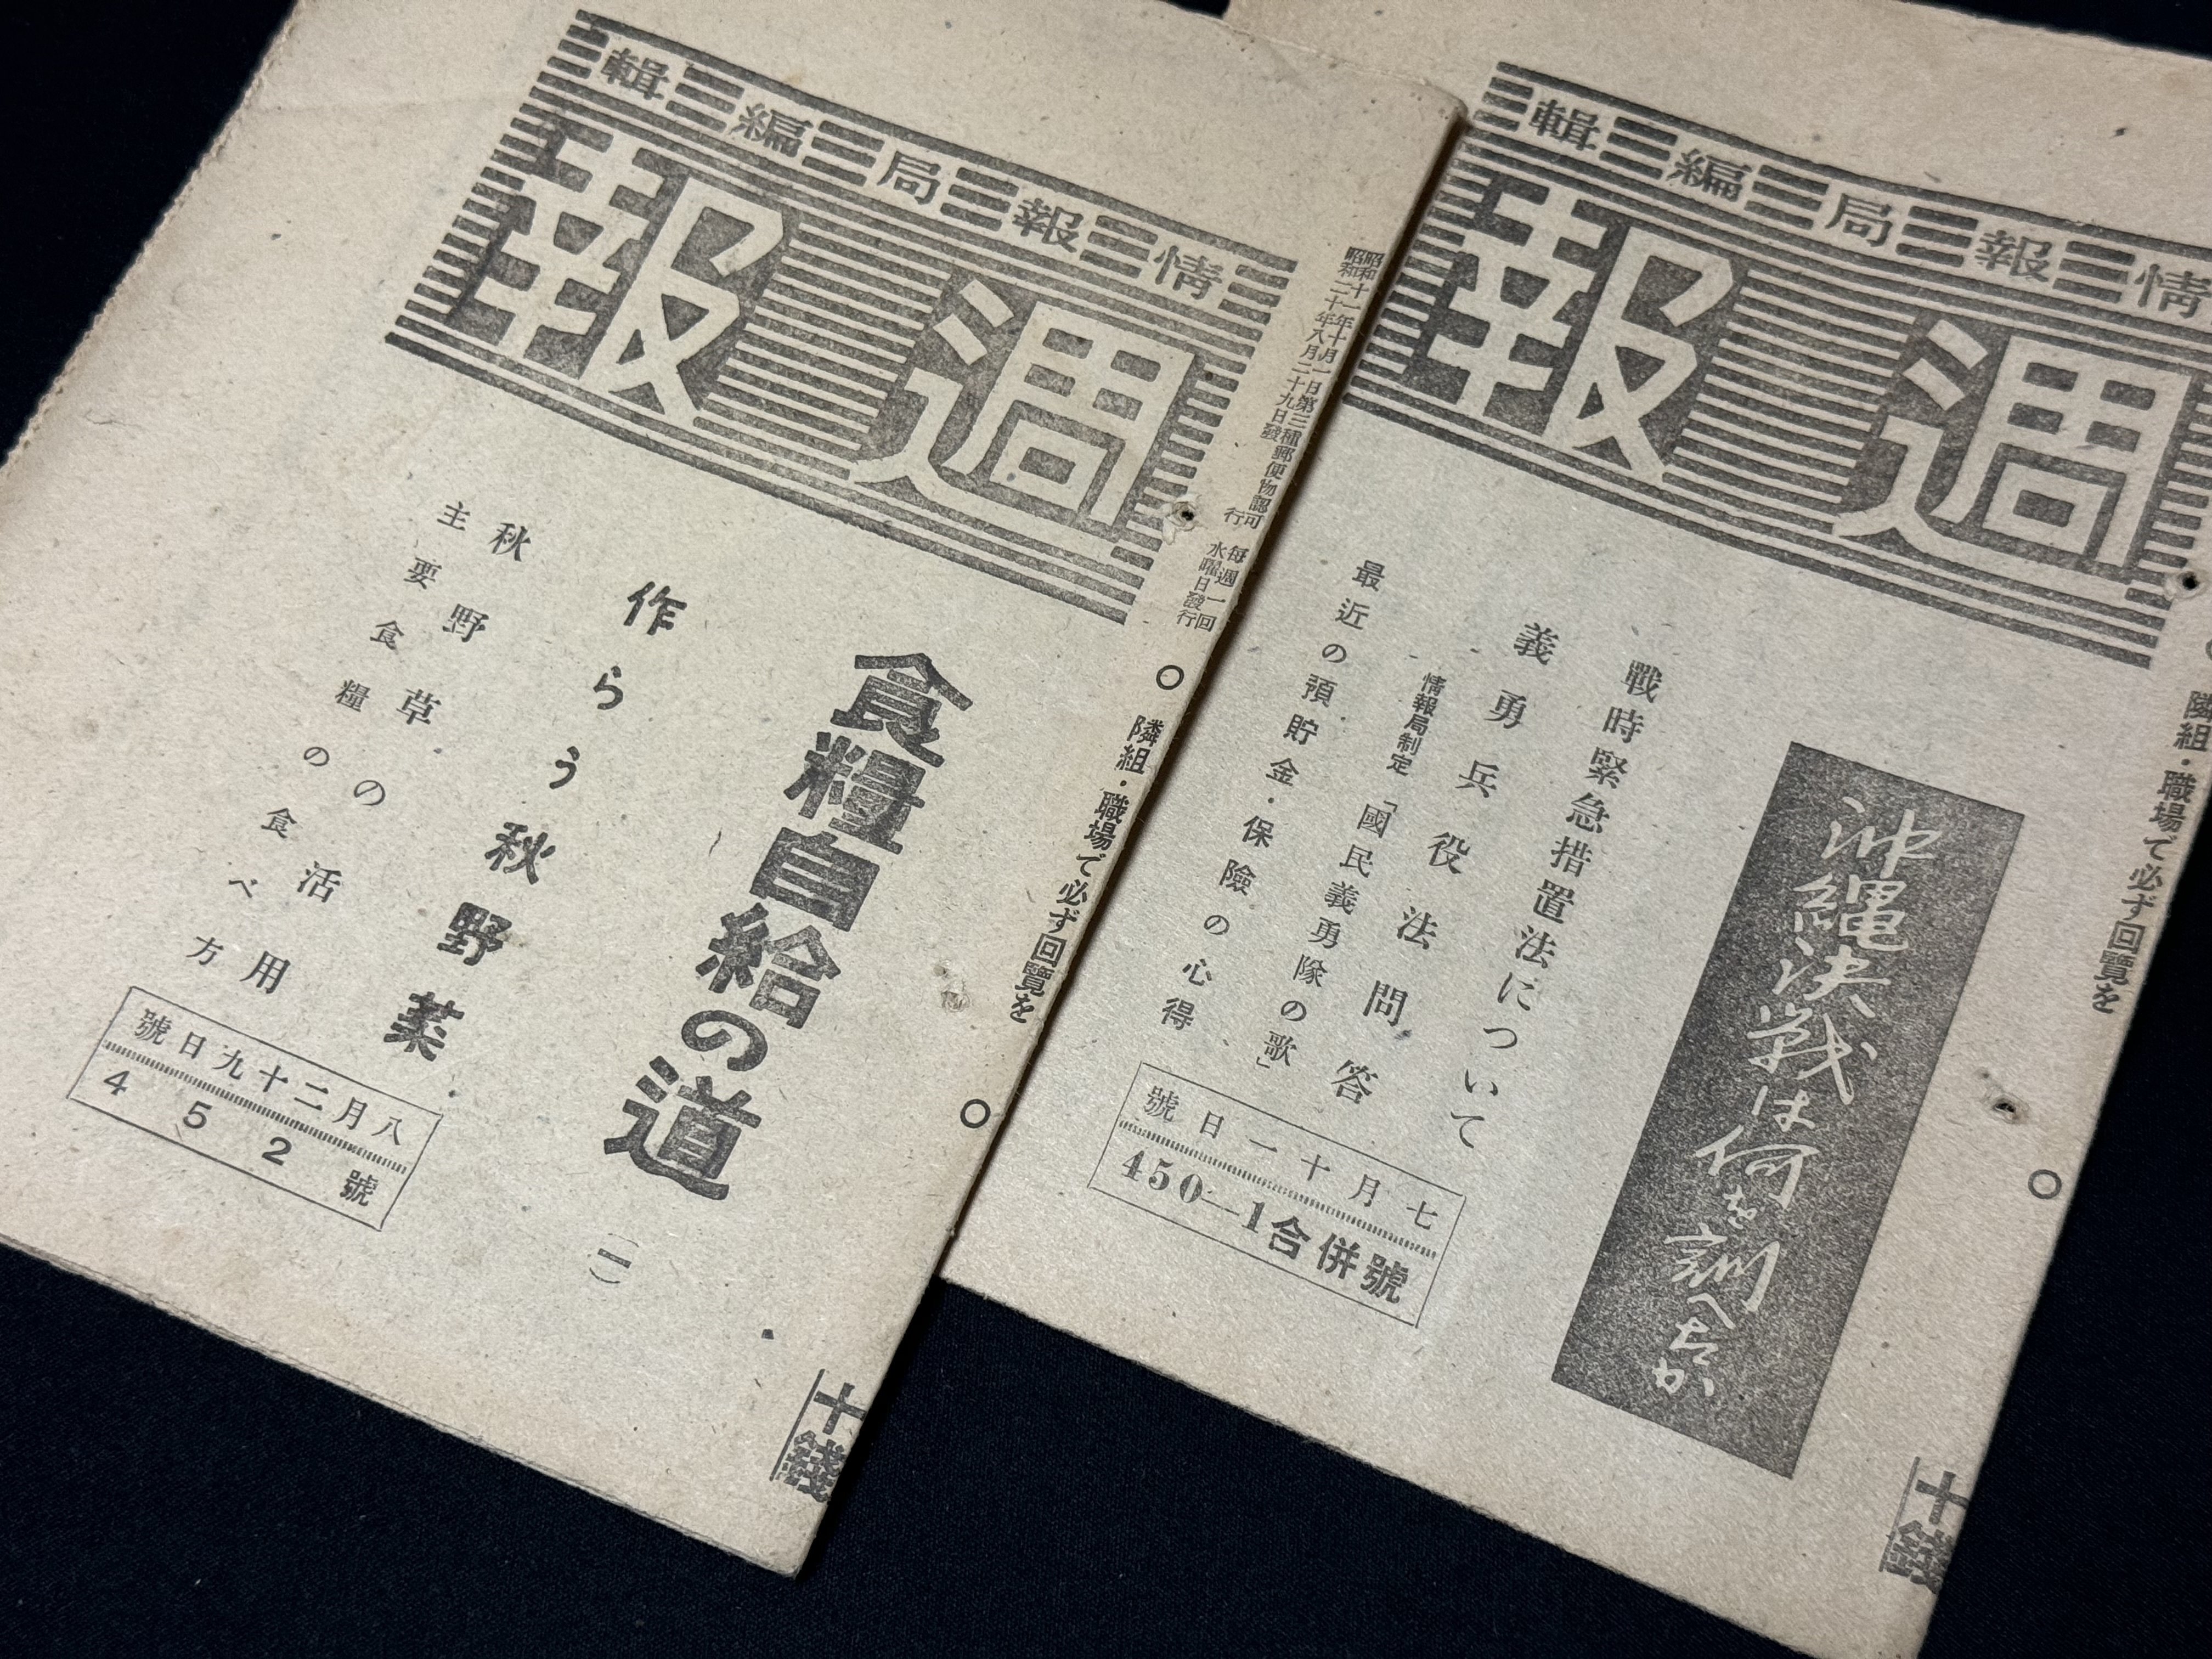 輯編局報情
報週
昭和十一年十月一日第三種郵便物認可
昭和二十年八月二十九日發行
每週一回
水曜日發行
○隣組・職場で必ず回覽を○
食糧自給の道(一)
作らう秋野菜
秋野草の活用
主要食糧の食べ方
號日九十二月八
452號
十錢
輯編局報情
報週
隣組・職場で必ず回覽を○
沖縄決戦は何を訓へたか
戰時緊急措置法について
義勇兵役法問答
情報局制定「國民義勇隊の歌」
最近の預貯金・保險の心得
號日一十月七
450-1合併號
十錢